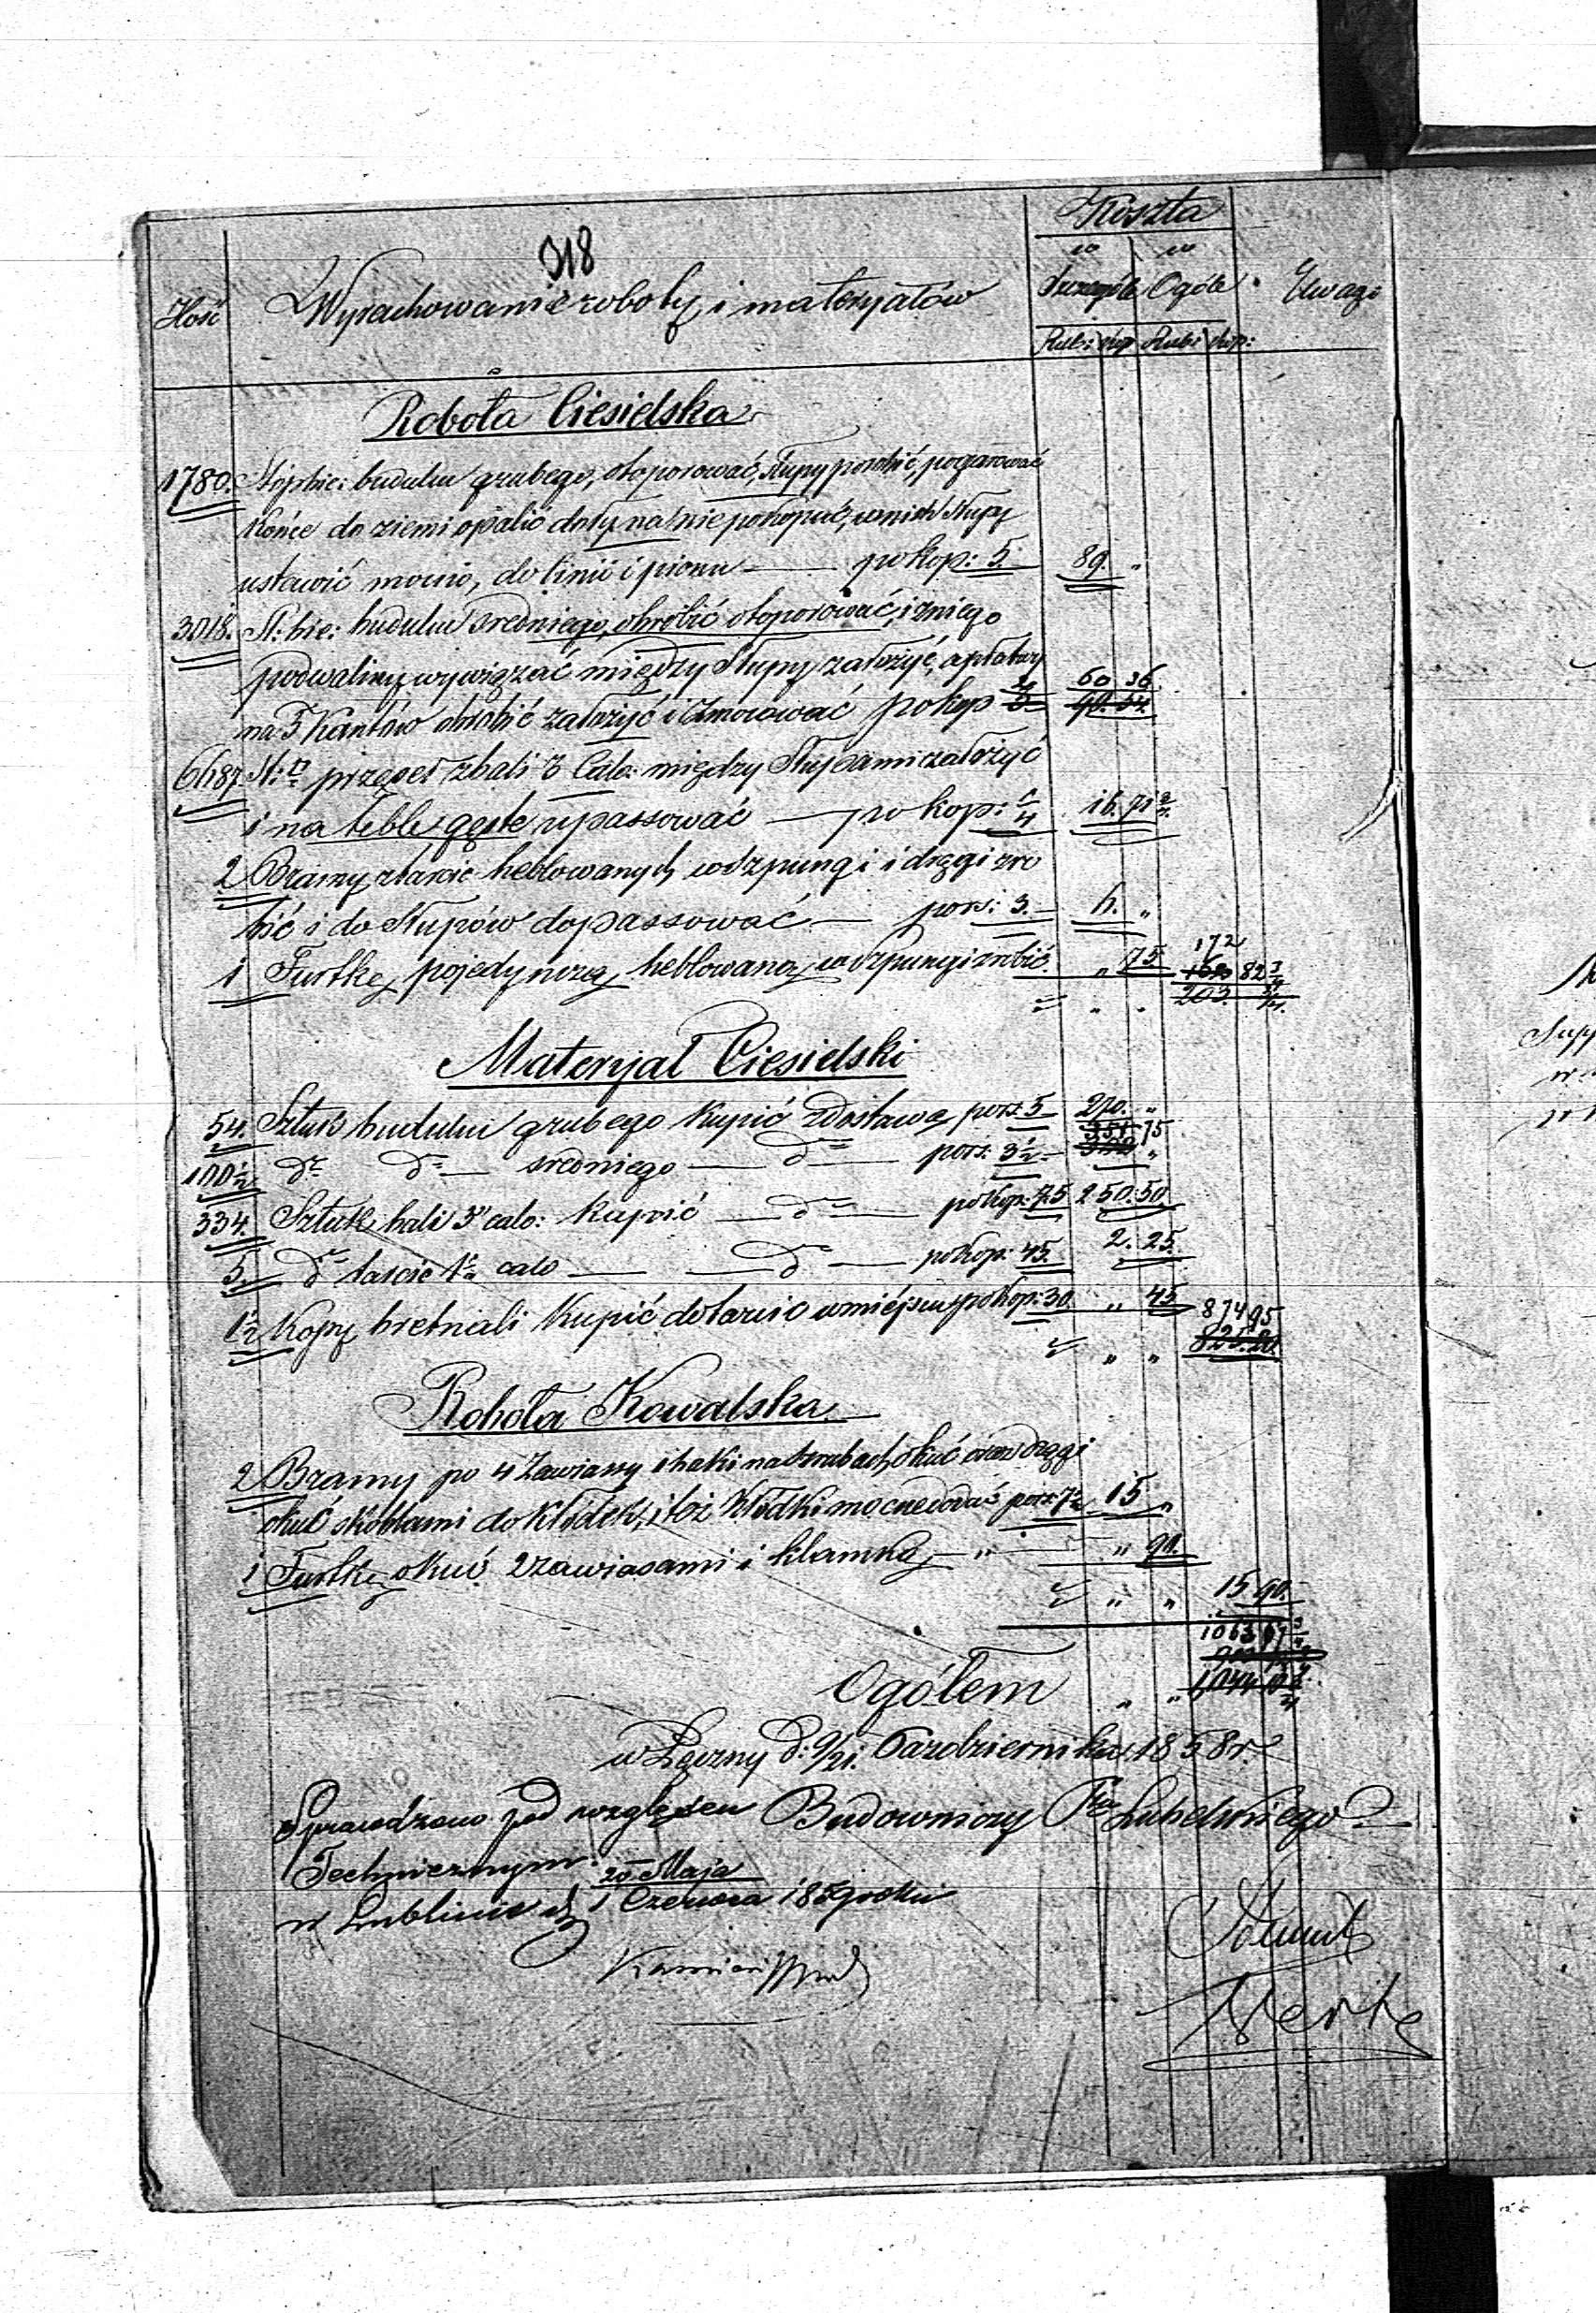 318
Koszta
w w
Ilość Wyrachowanie roboty i materyałów Szczególe Ogóle Uwagi
Rub: kop Rub: kop:
Robota Ciesielska
1780. Stóp bie: budulcu grubego, otoporować, słupy porobić,
końce do ziemi opalić doły na nie pokopać, w nich słupy
ustawić mocno, do linii i pionu — po kop: 5. 89. „
3018. St: bie: budulcu średniego, obrobić otoporować, i z niego
podwaliny wywiązać między słupy założyć, a płatwy
na 5 Kantów obrobić założyć i po kop 2 60 36
6687. St: przęseł z bali 3 Calo: między słupami założyć
i na teble gęste upassować — po kop: 1/4 16. 71 3/4
2 Bramy z tarcic heblowanych w szpungi i drągi zro
bić i do słupów dopassować — po rs: 3. — 6. „
1 Furtkę pojedynczą heblowaną w szpungi zrobić „ 75 172 82 3/4
203.
Materyał Ciesielski
54. Sztuk budulcu grubego kupić z dostawą po rs: 5 270. „
100 1/2 dto dto średniego — dto — po rs: 3 1/2 351 75
334. Sztuk bali 3" calo: kupić — dto — po kop: 75 250. 50
5. dto tarcic 1 1/2 calo — dto — po kop: 45. 2. 25.
1 1/2 Kopy bretnali kupić do tarcic w miejscu po kop: 30. „ 45 874 95
„ „ 825. 20.
Robota Kowalska
2 Bramy po 4 zawiasy i haki na szrubach, okuć oraz drągi
okuć skoblami do kłódek, i też kłódki mocne dodać po rs: 7 1/2 15 „
1 Furtkę okuć 2 zawiasami i klamką — „ — „ 90.
„ „ 15 90.
1063 67 3/4
Ogółem „ „ 1,044
w Łęczny d: 9/21. Października 1858 r
Sprawdzono pod względem Budowniczy Ptu Lubelskiego
Technicznym
w Lublinie d. 20 Maja / 1 Czerwca 1859 roku